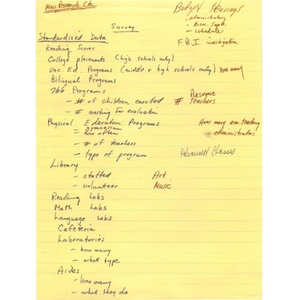 Budget Hearings
- administrators
- Assoc. Supt.
- schedules
F.B.I. investigation
Survey
Standardized Data
Reading Scores
College placements (high schools only)
Voc. Ed. Programs (middle + high schools only) how many
Bilingual Programs
766 Programs
- # of children enrolled
- # waiting for evaluation
# Resource Teachers
Physical Education Programs
- gymnasium
- how often
- # of teachers
- type of program
How many non-teaching administrators
Advanced Classes
Library
- staffed
- volunteer
Art
Music
Reading Labs
Math Labs
Language Labs
Cafeteria
Laboratories
- how many
- what type
Aides
- how many
- what they do